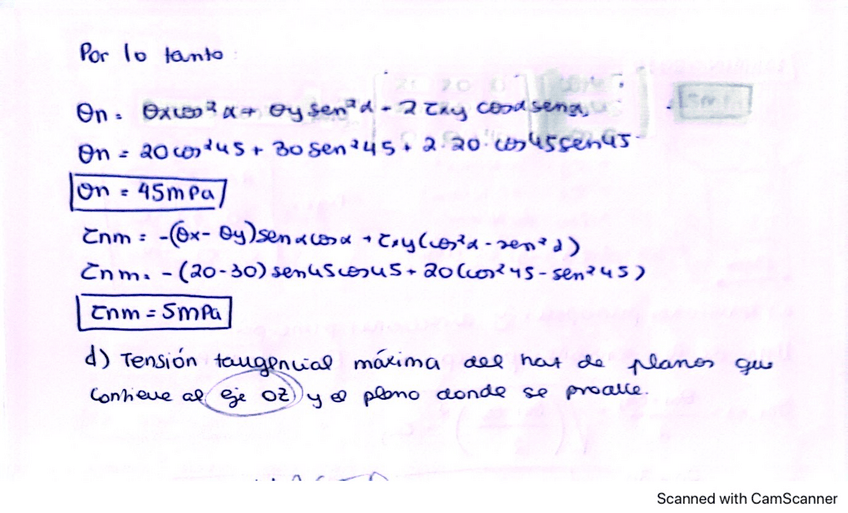 Por lo tanto:
θn = θxcos²α + θy sen²α - 2 τxy cosα senα
θn = 20 cos²45 + 30 sen²45 + 2·20·cos45sen45
θn = 45mPa
τnm = -(θx - θy)senαcosα + τxy(cos²α - sen²α)
τnm = -(20-30)sen45cos45 + 20(cos²45 - sen²45)
τnm = 5mPa
d) Tensión tangencial máxima del haz de planos que
contiene al eje OZ y el plano donde se
Scanned with CamScanner